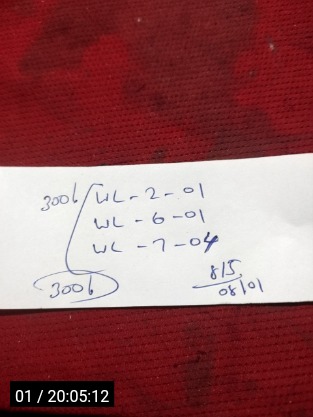 300b WL - 2 - 01
WL - 6 - 01
WL - 7 - 04
300b
815
08/01
01 / 20:05:12